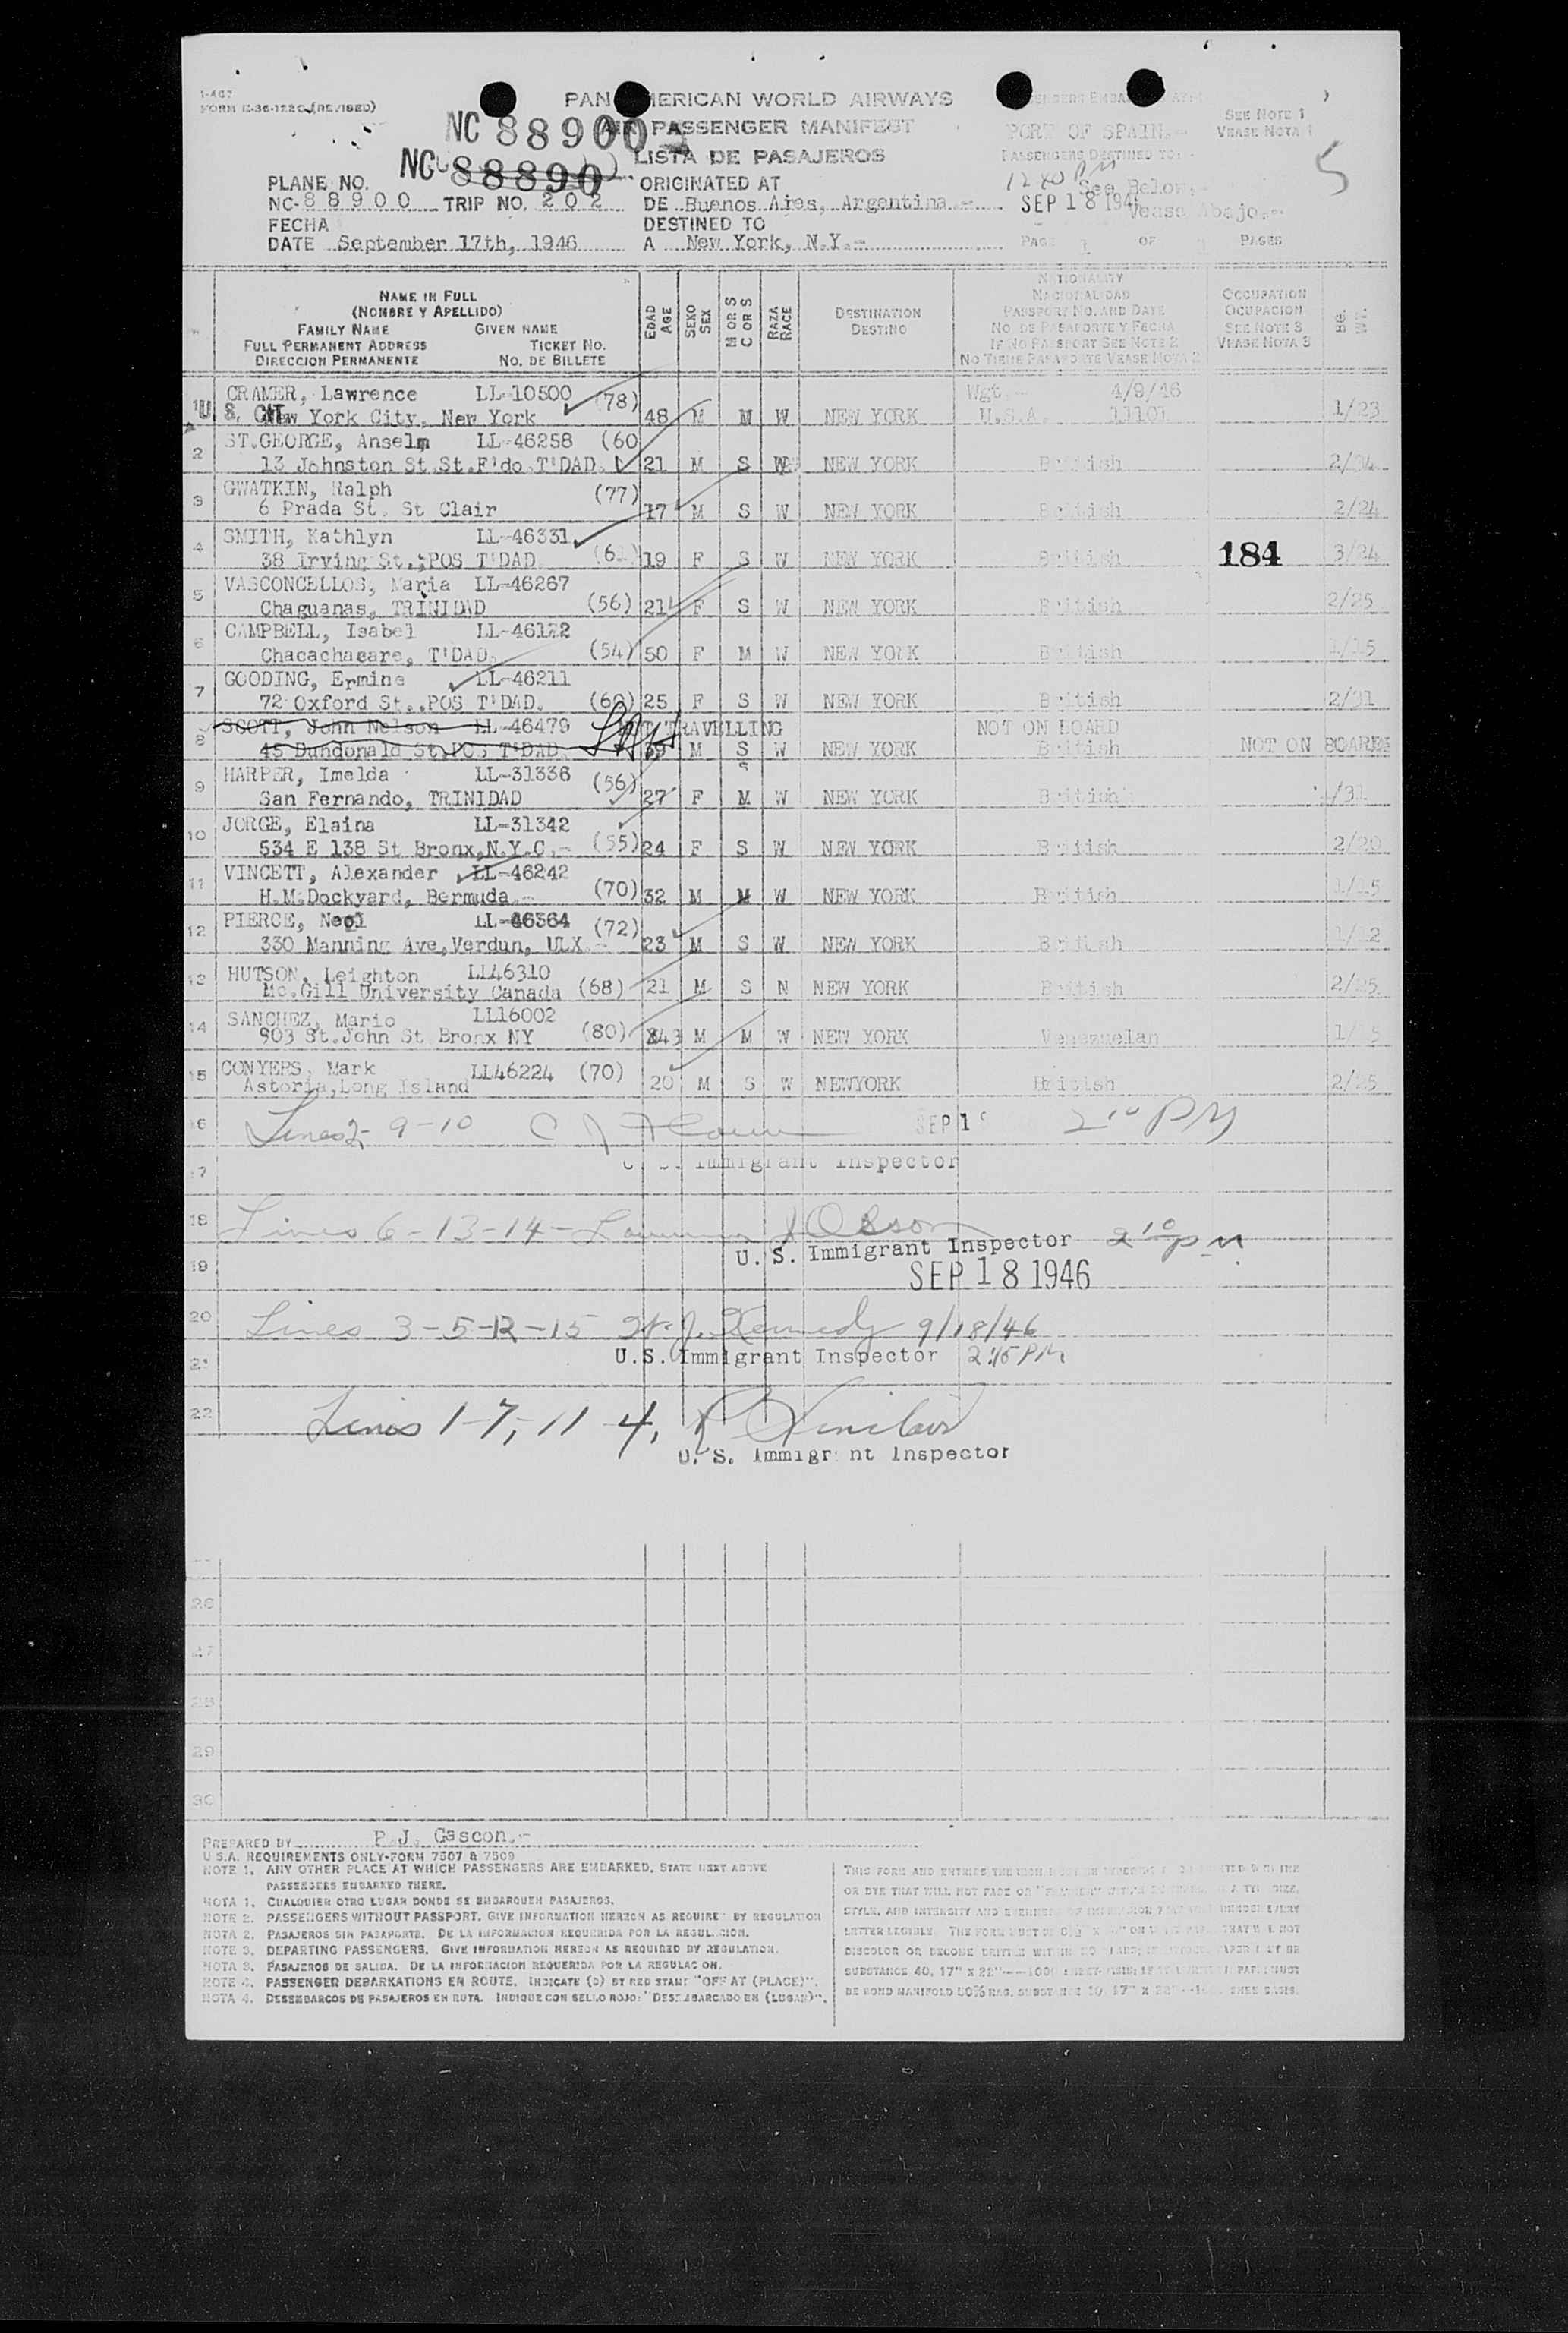 I-467
FORM E-36-1220 (REVISED)
PAN AMERICAN WORLD AIRWAYS
NC 88900
PASSENGER MANIFEST
LISTA DE PASAJEROS
NC 88890
PORT OF SPAIN.-
PASSENGERS DESTINED TO:-
SEE NOTE 1
VEASE NOTA 1
5
1240 PM
See Below.-
SEP 18 1946
Vease Abajo.-
PLANE NO.
NC-88900 TRIP NO. 202
ORIGINATED AT
DE Buenos Aires, Argentina.-
FECHA
DATE September 17th, 1946
DESTINED TO
A New York, N.Y.-
PAGE 1 OF PAGES
NAME IN FULL
(NOMBRE Y APELLIDO)
FAMILY NAME GIVEN NAME
FULL PERMANENT ADDRESS TICKET NO.
DIRECCION PERMANENTE NO. DE BILLETE
EDAD AGE
SEXO SEX
M OR S C OR S
RAZA RACE
DESTINATION
DESTINO
NATIONALITY
NACIONALIDAD
PASSPORT NO. AND DATE
NO. DE PASAPORTE Y FECHA
IF NO PASSPORT SEE NOTE 2
NO TIENE PASAPORTE VEASE NOTA 2
OCCUPATION
OCUPACION
SEE NOTE 3
VEASE NOTA 3
CRAMER, Lawrence LL-10500 (78) Wgt.- 4/9/46
1 U.S. CIT New York City, New York 48 M M W NEW YORK U.S.A. 11101 1/23
ST.GEORGE, Anselm LL-46258 (60
2 13 Johnston St.St.F'do.T'DAD. 21 M S W NEW YORK British 2/24
GWATKIN, Ralph (77)
3 6 Prada St. St Clair 17 M S W NEW YORK British 2/24
SMITH, Kathlyn LL-46331
4 38 Irving St.,POS T'DAD 19 F S W NEW YORK British 184 3/24
VASCONCELLOS, Maria LL-46267
5 Chaguanas, TRINIDAD (56) 21 F S W NEW YORK British 2/25
CAMPBELL, Isabel LL-46122
6 Chacachacare, T'DAD. (54) 50 F M W NEW YORK British 1/15
GOODING, Ermine LL-46211
7 72 Oxford St.,POS T'DAD. (60) 25 F S W NEW YORK British 2/31
SCOTT, John Nelson LL-46479 NOT TRAVELLING NOT ON BOARD
8 45 Dundonald St,POS T'DAD 39 M S W NEW YORK British NOT ON BOARD
HARPER, Imelda LL-31336 (56) S
9 San Fernando, TRINIDAD 27 F M W NEW YORK British /31
JORGE, Elaina LL-31342
10 534 E 138 St Bronx,N.Y.C.- (55) 24 F S W NEW YORK British 2/20
VINCETT, Alexander LL-46242
11 H.M.Dockyard, Bermuda.- (70) 32 M M W NEW YORK British 1/15
PIERCE, Neol LL-46364 (72)
12 330 Manning Ave,Verdun, ULX.- 23 M S W NEW YORK British 1/12
HUTSON, Leighton LL46310
13 Mc.Gill University Canada (68) 21 M S N NEW YORK British 2/25
SANCHEZ, Mario LL16002
14 903 St.John St Bronx NY (80) 43 M M W NEW YORK Venezuelan 1/15
CONYERS, Mark LL46224 (70)
15 Astoria,Long Island 20 M S W NEWYORK British 2/25
16 Lines 2- 9-10 SEP 1 2 10 PM
17 U. S. Immigrant Inspector
18 Lines 6-13-14- Olsson
U. S. Immigrant Inspector 2 10 PM
19 SEP 18 1946
20 Lines 3-5-12-15 J. Kennedy 9/18/46
21 U.S. Immigrant Inspector 2:15 PM
22 Lines 1-7, 11-4,
U. S. Immigrant Inspector
26
27
28
29
30
PREPARED BY P.J. Gascon.-
U.S.A. REQUIREMENTS ONLY-FORM 7507 & 7509
NOTE 1. ANY OTHER PLACE AT WHICH PASSENGERS ARE EMBARKED. STATE NEXT ABOVE
PASSENGERS EMBARKED THERE.
NOTA 1. CUALQUIER OTRO LUGAR DONDE SE EMBARQUEN PASAJEROS.
NOTE 2. PASSENGERS WITHOUT PASSPORT. GIVE INFORMATION HEREON AS REQUIRED BY REGULATION
NOTA 2. PASAJEROS SIN PASAPORTE. DE LA INFORMACION REQUERIDA POR LA REGULACION.
NOTE 3. DEPARTING PASSENGERS. GIVE INFORMATION HEREON AS REQUIRED BY REGULATION.
NOTA 3. PASAJEROS DE SALIDA. DE LA INFORMACION REQUERIDA POR LA REGULACION.
NOTE 4. PASSENGER DEBARKATIONS EN ROUTE. INDICATE (D) BY RED STAMP "OFF AT (PLACE)".
NOTA 4. DESEMBARCOS DE PASAJEROS EN RUTA. INDIQUE CON SELLO ROJO: "DESEMBARCADO EN (LUGAR)".
THIS FORM AND ENTRIES THEREON
OR DYE THAT WILL NOT FADE OR
STYLE, AND INTENSITY AND
LETTER LEGIBLY. THE FORM MUST BE
DISCOLOR OR BECOME BRITTLE WITHIN
SUBSTANCE 40, 17" X 22"
BE BOND MANIFOLD 50% RAG,